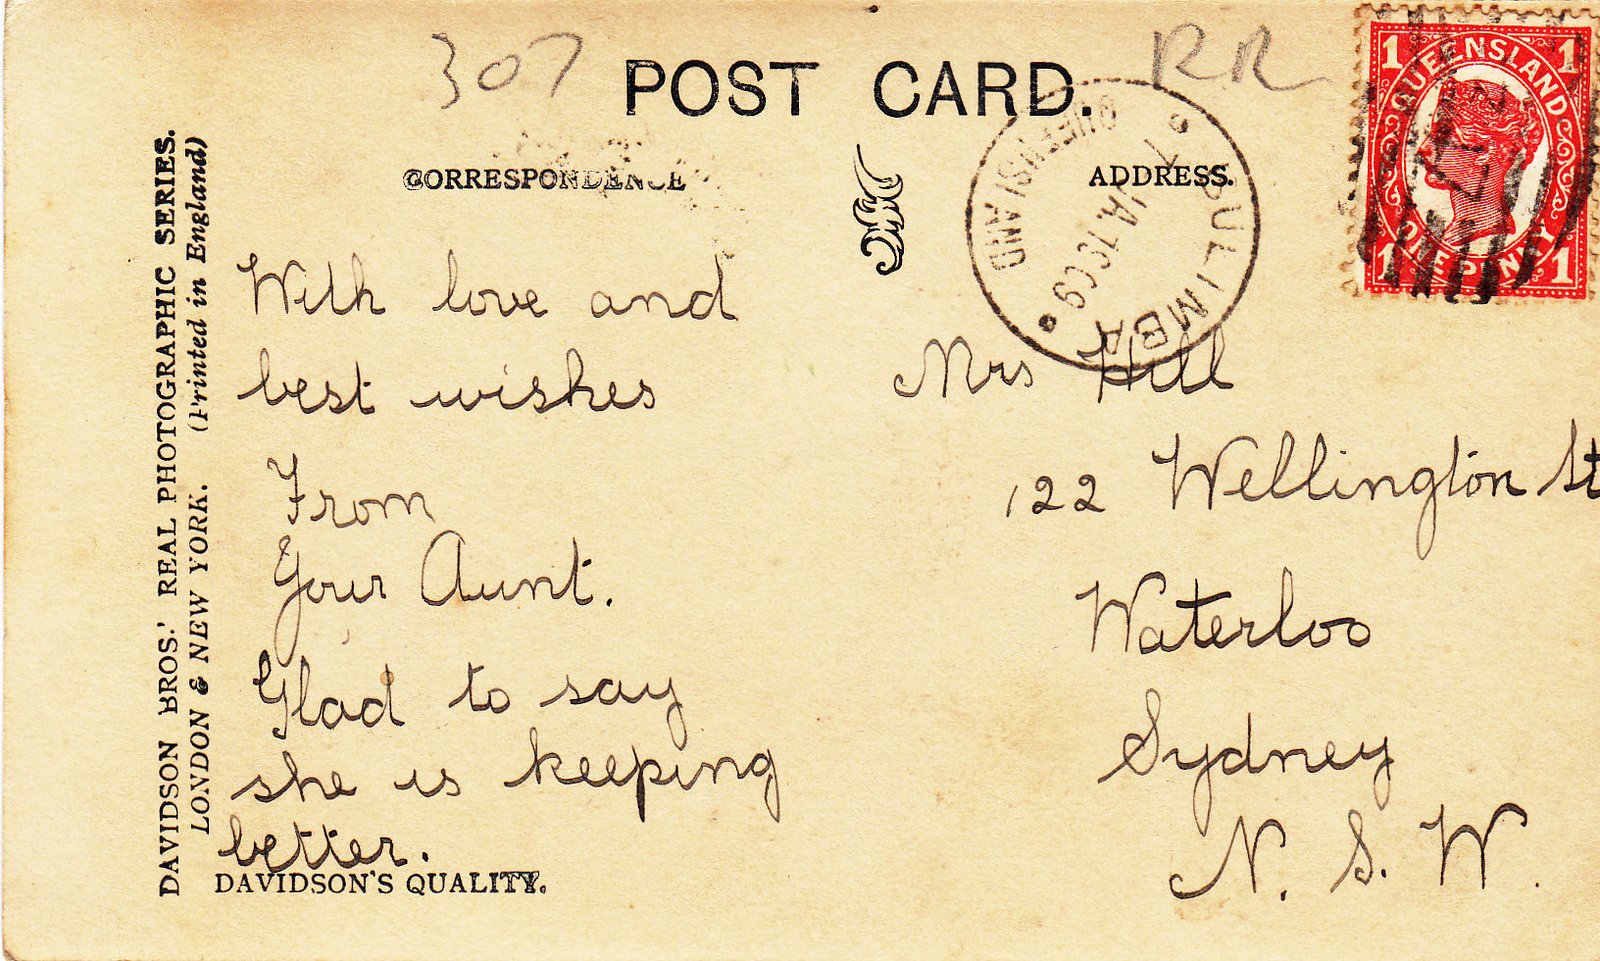 307
RR
POST CARD.
CORRESPONDENCE
ADDRESS.
QUEENSLAND
1 1
ONE PENNY
1 1
BULIMBA
QUEENSLAND
DAVIDSON BROS.' REAL PHOTOGRAPHIC SERIES.
LONDON & NEW YORK. (Printed in England)
With love and
best wishes
From
Your Aunt.
Glad to say
she is keeping
better.
DAVIDSON'S QUALITY.
Mrs Hill
122 Wellington St
Waterloo
Sydney
N. S. W.